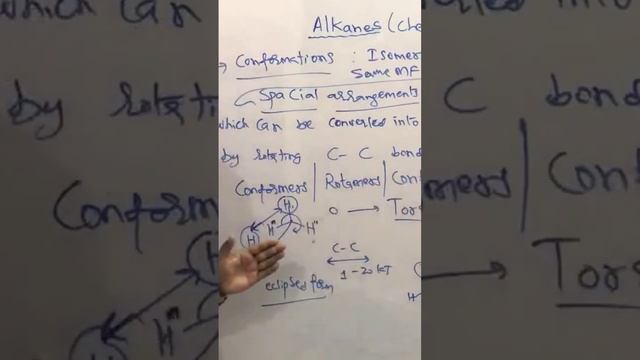 Alkanes (Che
→ Conformations : Isomer
same MF
Spacial arrangements
which can be converted into
by rotating C-C bond
Conformers | Rotamers | Con
H H H" H" θ → Tors
C-C
1-20 kJ
eclipsed form